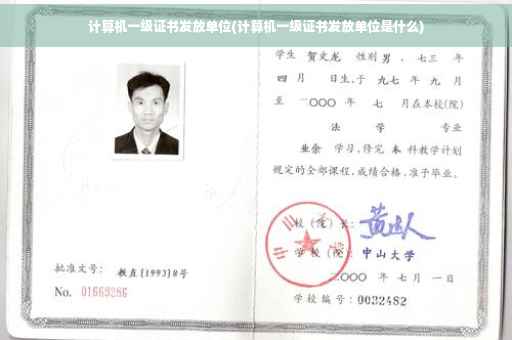 计算机一级证书发放单位(计算机一级证书发放单位是什么)
学生 贺文龙 性别 男 、七三 年
四 月 日生,于 九七 年 九 月
至 二〇〇〇 年 七 月在本校(院)
法 学 专业
业余 学习,修完 本 科教学计划
规定的全部课程,成绩合格,准予毕业。
校 (院) 长:
学 校 (院): 中山大学
二〇〇〇 年 七 月 一 日
学校编号: 0032482
批准文号: 教直[1993]8号
No. 01669286